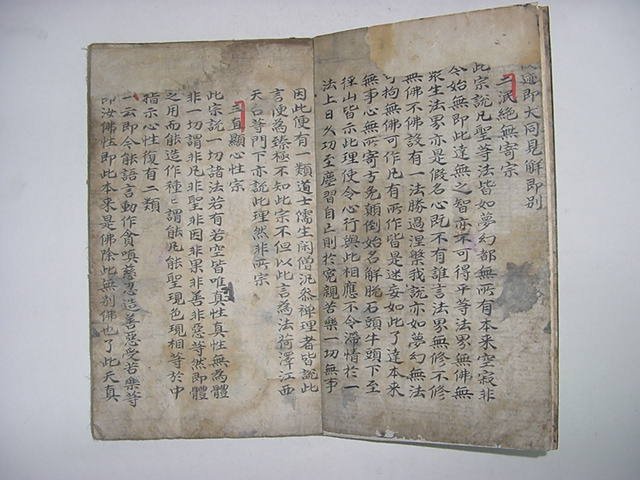 迹即大同見解即別
二泯絶無寄宗
此宗說凡聖等法皆如夢幻都無所有本来空寂非
今始無即此達無之智亦不可得平等法界無佛無
衆生法界亦是假名心既不有誰言法界無修不修
無佛不佛設有一法勝過涅槃我說亦如夢幻無法
可拘無佛可作凡有所作皆是迷妄如此了達本来
無事心無所寄方免顛倒始名解脫石頭牛頭下至
徑山皆示此理使令心行與此相應不令滯情於一
法上日久功至塵習自亡則於寃親苦樂一切無事
因此便有一類道士儒生閑僧汎叅禅理者皆說此
言便為臻極不知此宗不但以此言為法荷澤江西
天台等門下亦說此理然非所宗
三直顯心性宗
此宗說一切諸法若有若空皆唯真性真性無為體
非一切謂非凡非聖非因非果非善非惡等然即體
之用而能造作種〻謂能凡能聖現色現相等於中
指示心性復有二類
一云即今能語言動作貪嗔慈忍造善惡受苦樂等
即汝佛性即此本来是佛除此無別佛也了此天真